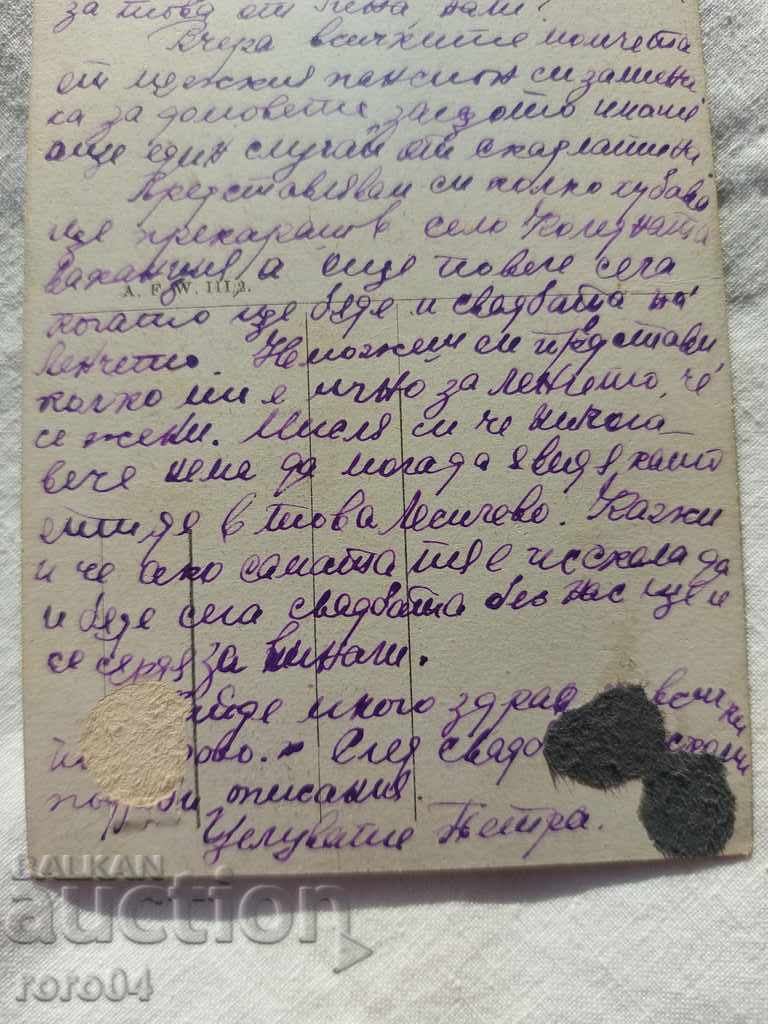 за това от Пена нали?
Вчера всичките момчета
от мъжкия пансион си замина
ха за домовете защото имаше
още един случай от скарлатина
Представлявам си колко хубаво
ще прекараш в село Коледната
ваканция а още повече сега
A. F. W. III,2.
когато ще бъде и свадбата на
Ленчето. Не можеш си представи
колко ми е мъчно за Ленчето, че
се жени. Мисля си че никога
вече нема да мога да я видя, като
отиде в това Лесичево. Кажи
и че ако самата тя е искала да
и бъде сега свадбата без нас ще и
се сърдя за винаги.
много здрави всички
След свадб
описания.
Целувам те Петра.
BALKAN
auction
roro04